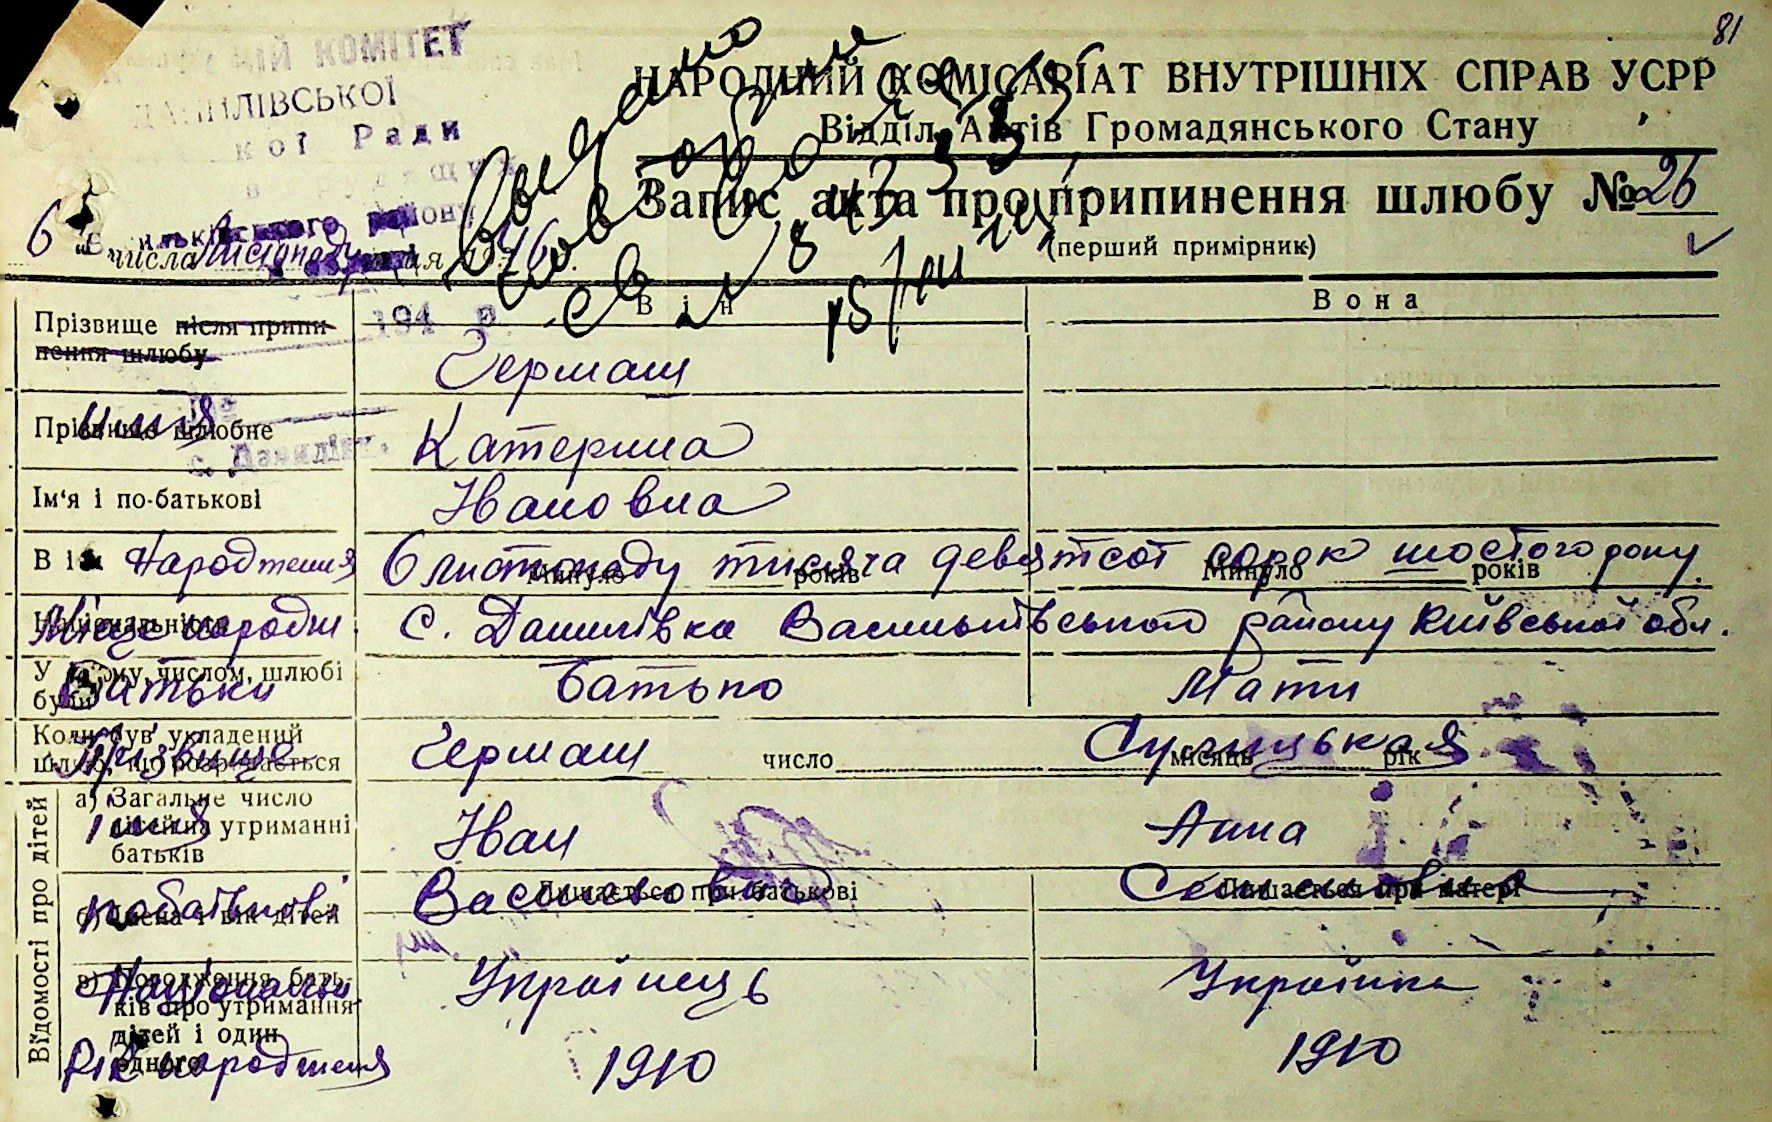 81
КОМІТЕТ
ДАНИЛІВСЬКОЇ
кої Ради
НАРОДНИЙ КОМІСАРІАТ ВНУТРІШНІХ СПРАВ УСРР
Відділ Актів Громадянського Стану
Запис акта про припинення шлюбу № 26
(перший примірник)
6 числа листопаду
194 р.
Він Вона
Прізвище після припинення шлюбу
Герман
Прізвище шлюбне
Имя Катерина
Ім'я і по-батькові Ивановна
Вік Народження 6 листопаду тисяча девятсот сорок шостого року.
Минуло років Минуло років
Національність
Місце народж. С. Данилівка Васильківського району Київської обл.
У якому, числом, шлюбі були
Батьки Батько Мати
Коли був укладений шлюб, що розривається
число місяць рік
Прізвище Герман
Відомості про дітей
а) Загальне число дітей на утриманні батьків
імя Иван Анна
Лишається при батькові Лишається при матері
б) Імена і вік дітей
побатькові Васильович Семеновна
в) Погодження батьків про утримання дітей і один одного
Національн. Українець Українка
Рік народження 1910 1910